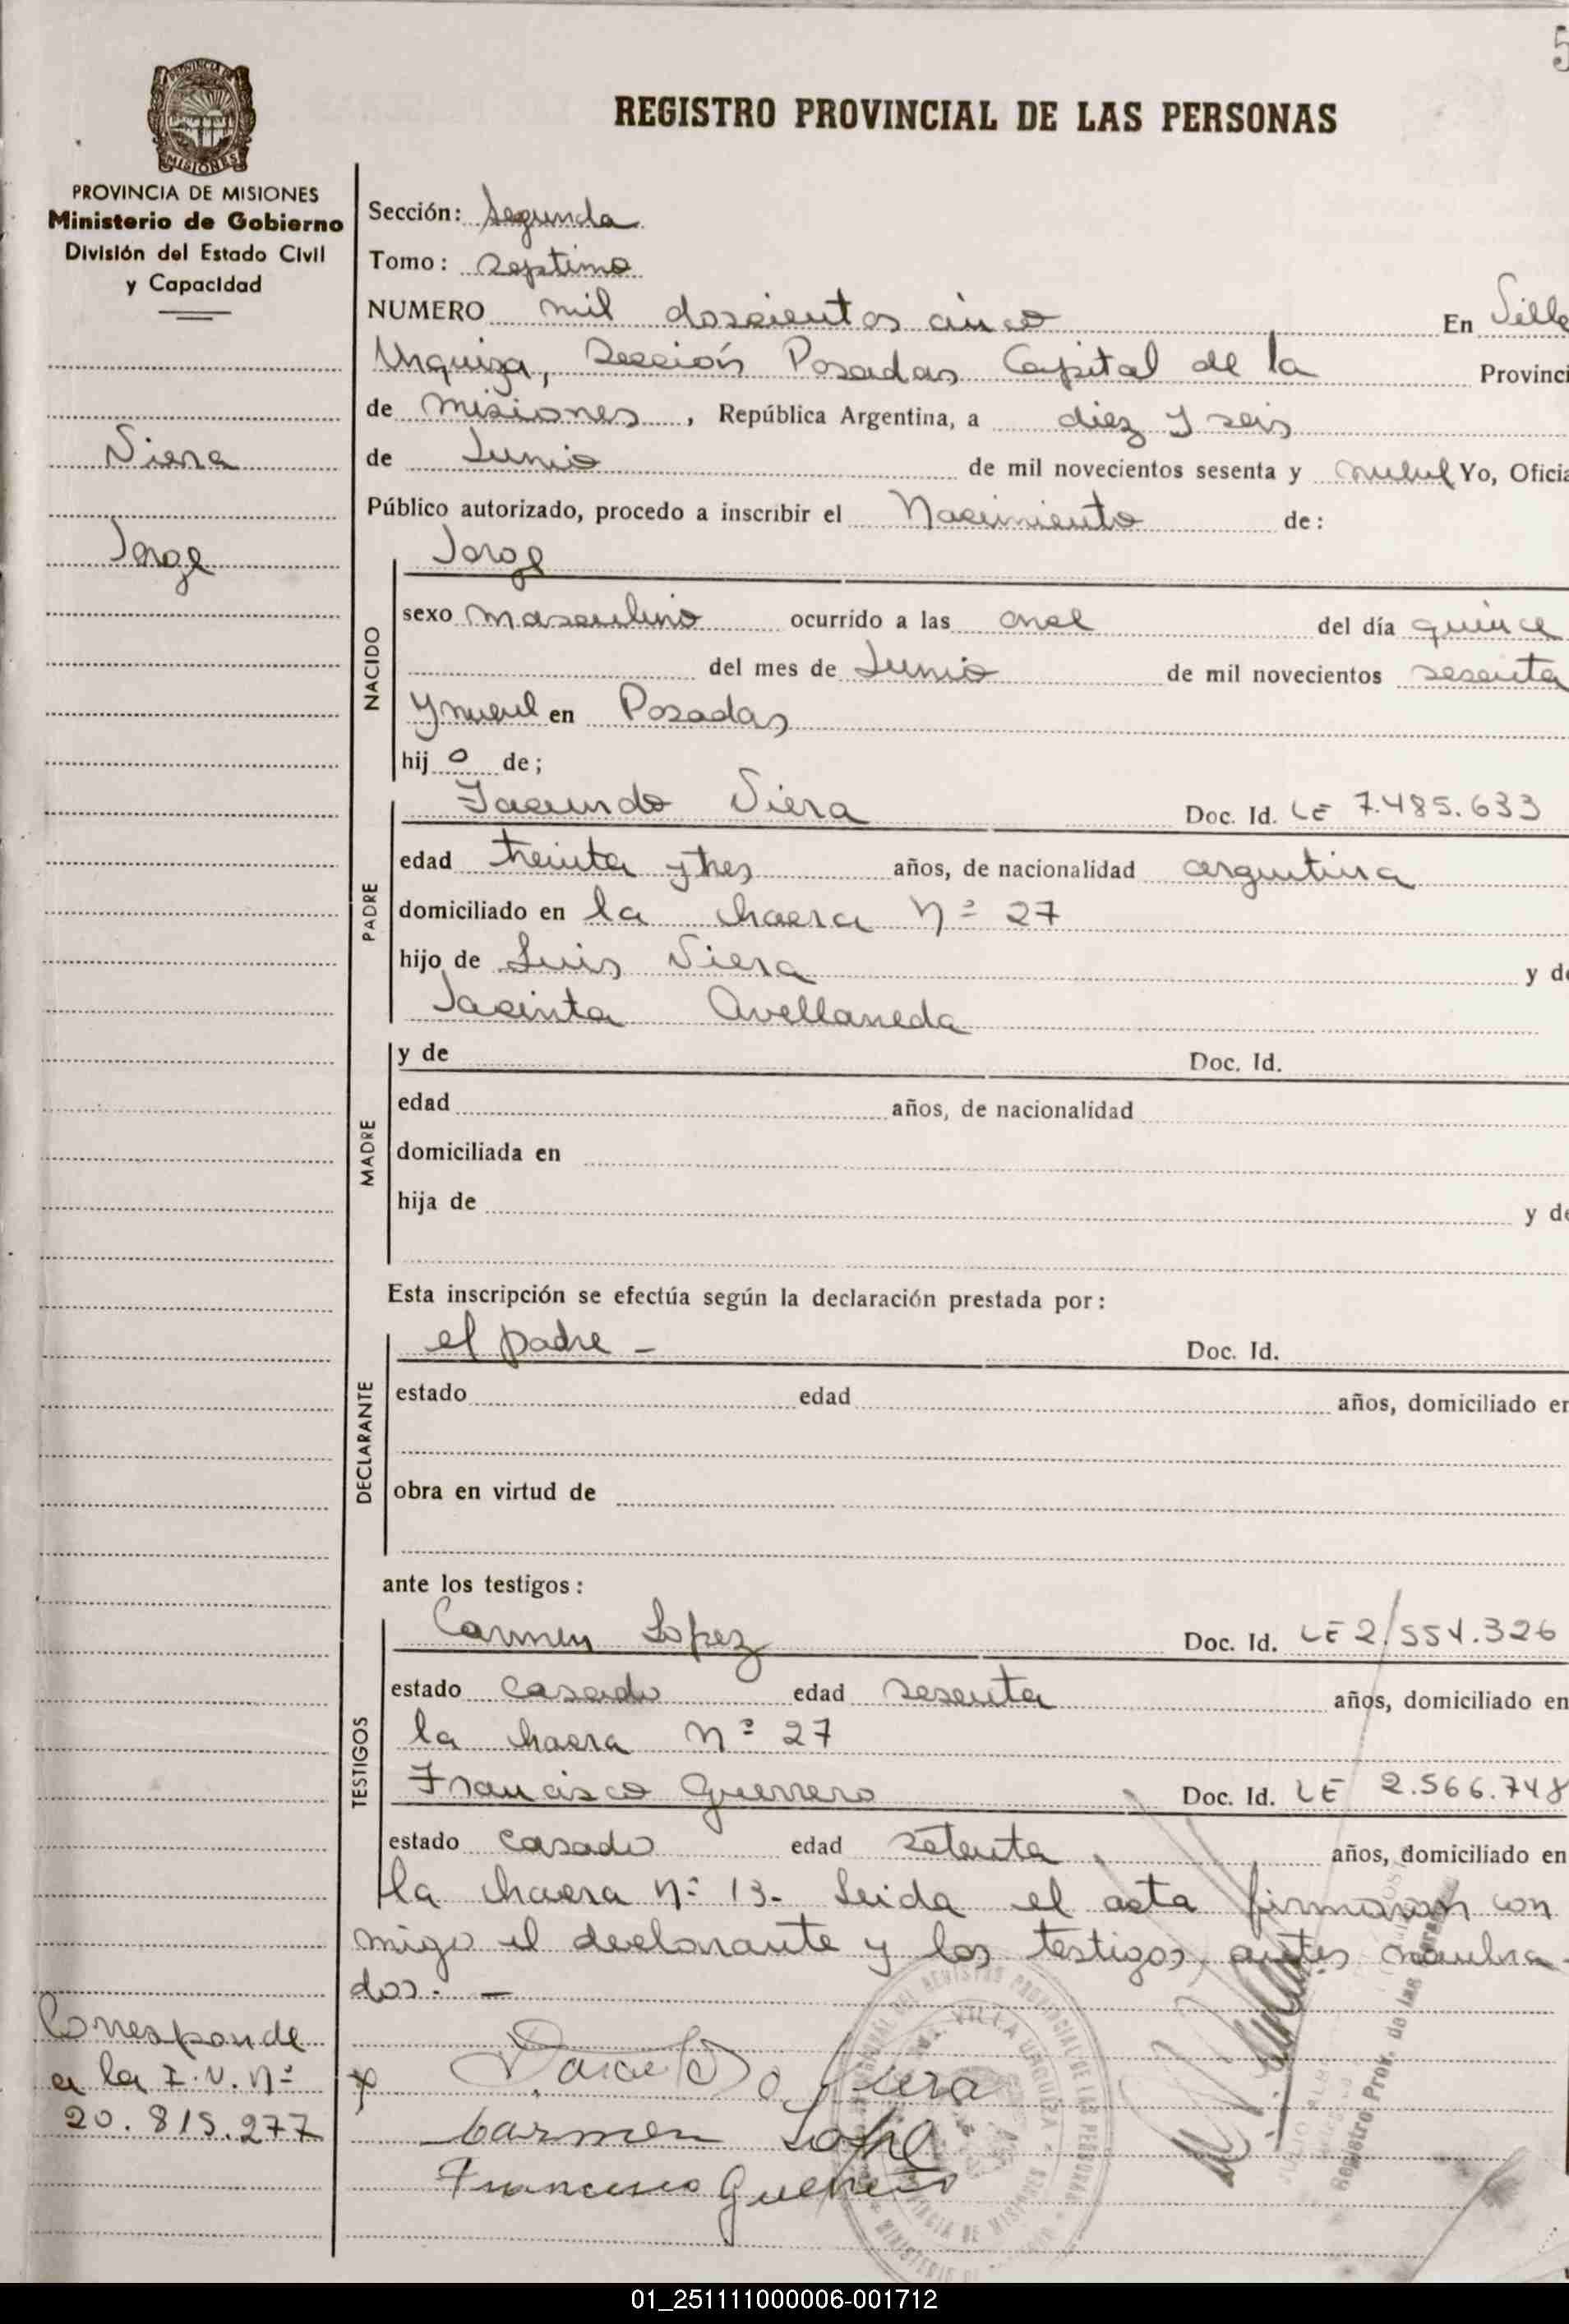 5
REGISTRO PROVINCIAL DE LAS PERSONAS
MISIONES
PROVINCIA DE MISIONES
Ministerio de Gobierno
División del Estado Civil
y Capacidad
Sección: Segunda
Tomo: septimo
NUMERO mil doscientos cinco En Villa
Urquiza, Sección Posadas Capital de la Provinci
de Misiones, República Argentina, a diez y seis
Viera
de Junio de mil novecientos sesenta y nueve Yo, Oficia
Público autorizado, procedo a inscribir el Nacimiento de:
Jorge
Jorge
NACIDO
sexo masculino ocurrido a las once del día quince
del mes de Junio de mil novecientos sesenta
y nueve en Posadas
hij o de;
PADRE
Facundo Viera Doc. Id. LE 7.485.633
edad treinta y tres años, de nacionalidad argentina
domiciliado en la chacra Nº 27
hijo de Luis Viera y de
Jacinta Avellaneda
MADRE
y de Doc. Id.
edad años, de nacionalidad
domiciliada en
hija de y de
Esta inscripción se efectúa según la declaración prestada por:
DECLARANTE
el padre - Doc. Id.
estado edad años, domiciliado en
obra en virtud de
ante los testigos:
TESTIGOS
Carmen Lopez Doc. Id. LE 2.554.326
estado casado edad sesenta años, domiciliado en
la chacra Nº 27
Francisco Guerrero Doc. Id. LE 2.566.748
estado casado edad setenta años, domiciliado en
la chacra Nº 13- Leida el acta firmaron con
migo el declarante y los testigos antes nombra-
dos. -
Corresponde
a la I.N. Nº
20.815.277
Viera
Carmen Lopez
Francisco Guerrero
VILLA URQUIZA
Registro Prov. de las Personas
01_251111000006-001712